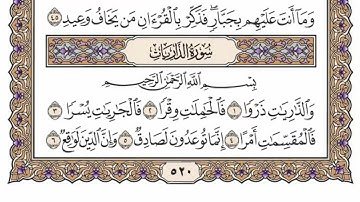 وَمَآ أَنتَ عَلَيْهِم بِجَبَّارٍ ۖ فَذَكِّرْ بِالْقُرْءَانِ مَن يَخَافُ وَعِيدِ ٤٥
سُورَةُ الذَّارِيَاتِ
بِسْمِ اللَّهِ الرَّحْمَٰنِ الرَّحِيمِ
وَالذَّٰرِيَٰتِ ذَرْوًا ١ فَالْحَٰمِلَٰتِ وِقْرًا ٢ فَالْجَٰرِيَٰتِ يُسْرًا ٣
فَالْمُقَسِّمَٰتِ أَمْرًا ٤ إِنَّمَا تُوعَدُونَ لَصَادِقٌ ٥ وَإِنَّ الدِّينَ لَوَٰقِعٌ ٦
٥٢٠